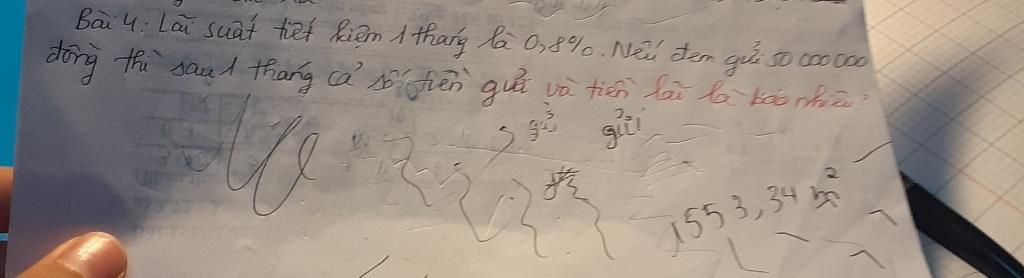 Bài 4: Lãi suất tiết kiệm 1 tháng là 0,8%. Nếu đem gửi 50 000 000
đồng thì sau 1 tháng cả số tiền gửi và tiền lãi là bao nhiêu?
gửi gửi
1553,34 m²